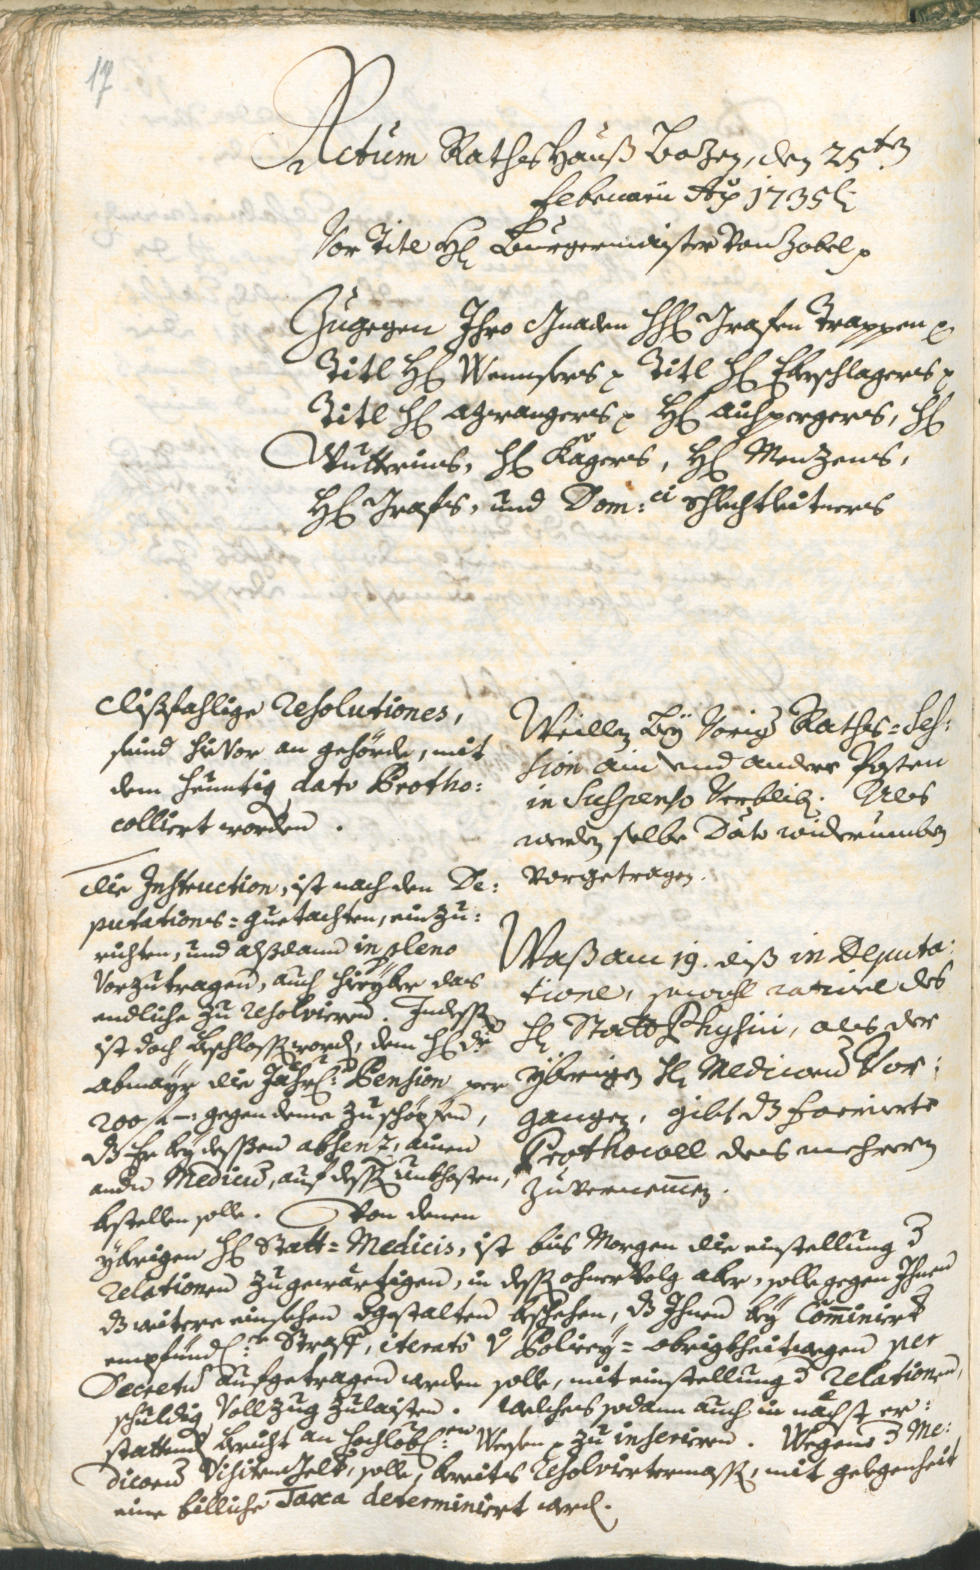 17
Actum Rathshauß Bozen, den 25ten
Februarii Ao 1735
Vor Titl H. Burgermaister von Zobel
Zugegen Ihro Gnaden HH Grafen Trappen
Titl H. Wennsers Titl H. Eberschlagers
Titl H. Azwangers H. Auhpergers, H.
Gutterius, H. Kagers, H. Menzens,
H. Grafs, und Dom: ci Schlechtleitners
Dißfahlige Resolutiones,
seind hievor an gehörde, mit
dem heuntig dato Protho:
colliert worden.
Weillen bey vorig Raths=Ses:
sion ain und andere Posten
in Suspenso verblib. Als
werden selbe Dato widerumben
vorgetragen.
Die Instruction, ist nach den De:
putations=guetachten, einzu:
richten, und alßdann in pleno
vorzutragen, auch hieryber das
endliche zu resolvieren. Indessen
ist doch beschlossen worden, dem H. Dr
Abmayr die Jährl: Pension per
200 f —: gegen deme zu schöpfen,
dß Er bey dessen absenz, ainen
andern Medicum, auf dessen unkhosten,
bestellen solle. Von denen
Waß am 19. diß in Deputa:
tione, sowohl ratione des
H. Statt Physici, als der
yberigen H. Medicorum vor:
gangen, gibt dß formierte
Prothocoll des mehrern
zuvernemen.
yberigen H. Statt=Medicis, ist bis Morgen die einstellung der
Relationen zugewärtigen, in dessen ohnervolg aber, solle gegen Ihnen
dß weitere einsehen dergestalten beschehen, dß Ihnen bey Cominiert
empfindl: Straff, iterato von Policey=obrigkheitwegen per
Decretum aufgetragen werden solle, mit einstellung der Relationen,
schuldig vollzug zulaisten. Welches sodann auch in nächst er:
stattend bericht an hochlöbl:en Weesen zu inserieren. Wegen der Me:
dicorum Visitengelt, solle, bereits Resolviertermassen, mit gelegenheit
eine billiche Taxa determiniert werden.